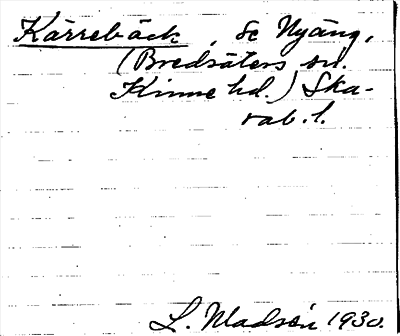 Kärrebäck, se Nyäng,
(Bredsäters sn.
Kinne hd.) Ska-
rab. l.
L. Madsén 1930.